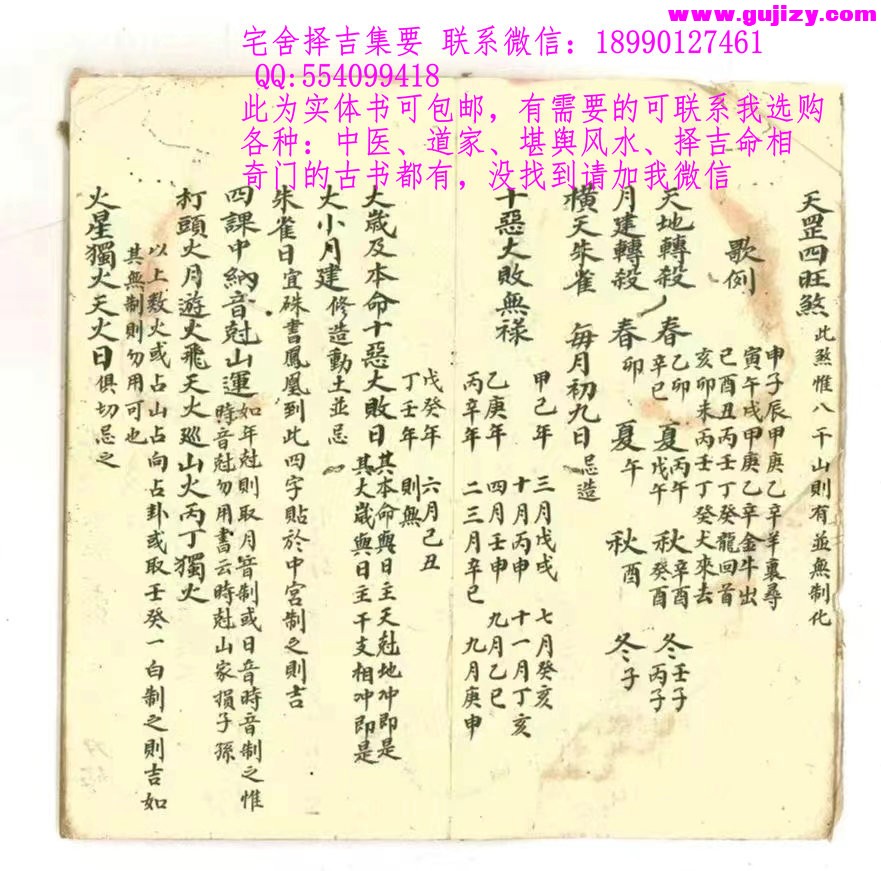 www.gujizy.com
宅舍择吉集要 联系微信：18990127461
QQ:554099418
此为实体书可包邮，有需要的可联系我选购
各种：中医、道家、堪舆风水、择吉命相
奇门的古书都有，没找到请加我微信
天罡四旺煞 此煞惟八干山則有並無制化
歌例
申子辰甲庚乙辛羊裏尋
寅午戌甲庚乙辛金牛出
巳酉丑丙壬丁癸龍回首
亥卯未丙壬丁癸犬來去
天地轉殺 春 乙卯 辛巳 夏 丙午 戊午 秋 辛酉 癸酉 冬 壬子 丙子
月建轉殺 春 卯 夏 午 秋 酉 冬 子
橫天朱雀 每月初九日 忌造
十惡大敗無祿
甲己年 三月戊戌 七月癸亥 十月丙申 十一月丁亥
乙庚年 四月壬申 九月乙巳
丙辛年 二三月辛巳 九月庚申
戊癸年 六月己丑
丁壬年 則無
大歲及本命十惡大敗日 其本命與日主天尅地冲即是
其大歲與日主干支相冲即是
大小月建 修造動土並忌
朱雀日 宜硃書鳳凰到此四字貼於中宮制之則吉
四課中納音尅山運 如年尅則取月音制或日音時音制之惟
時音尅勿用書云時尅山家損子孫
打頭火月遊火飛天火巡山火丙丁獨火
以上数火或占山占向占卦或取壬癸一白制之則吉如
其無制則勿用可也
火星獨火天火日 俱切忌之